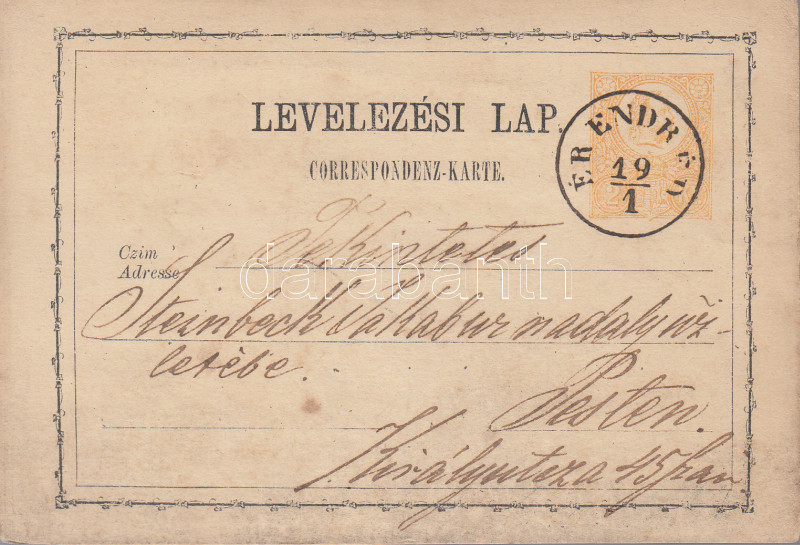 LEVELEZÉSI LAP.
CORRESPONDENZ-KARTE.
ÉR ENDRÉD
19
1
Czim
Adresse
Tekintetes
Steinbeck Jakab ur nadaly üz-
letébe.
Pesten.
Királyutcza 45
darabanth